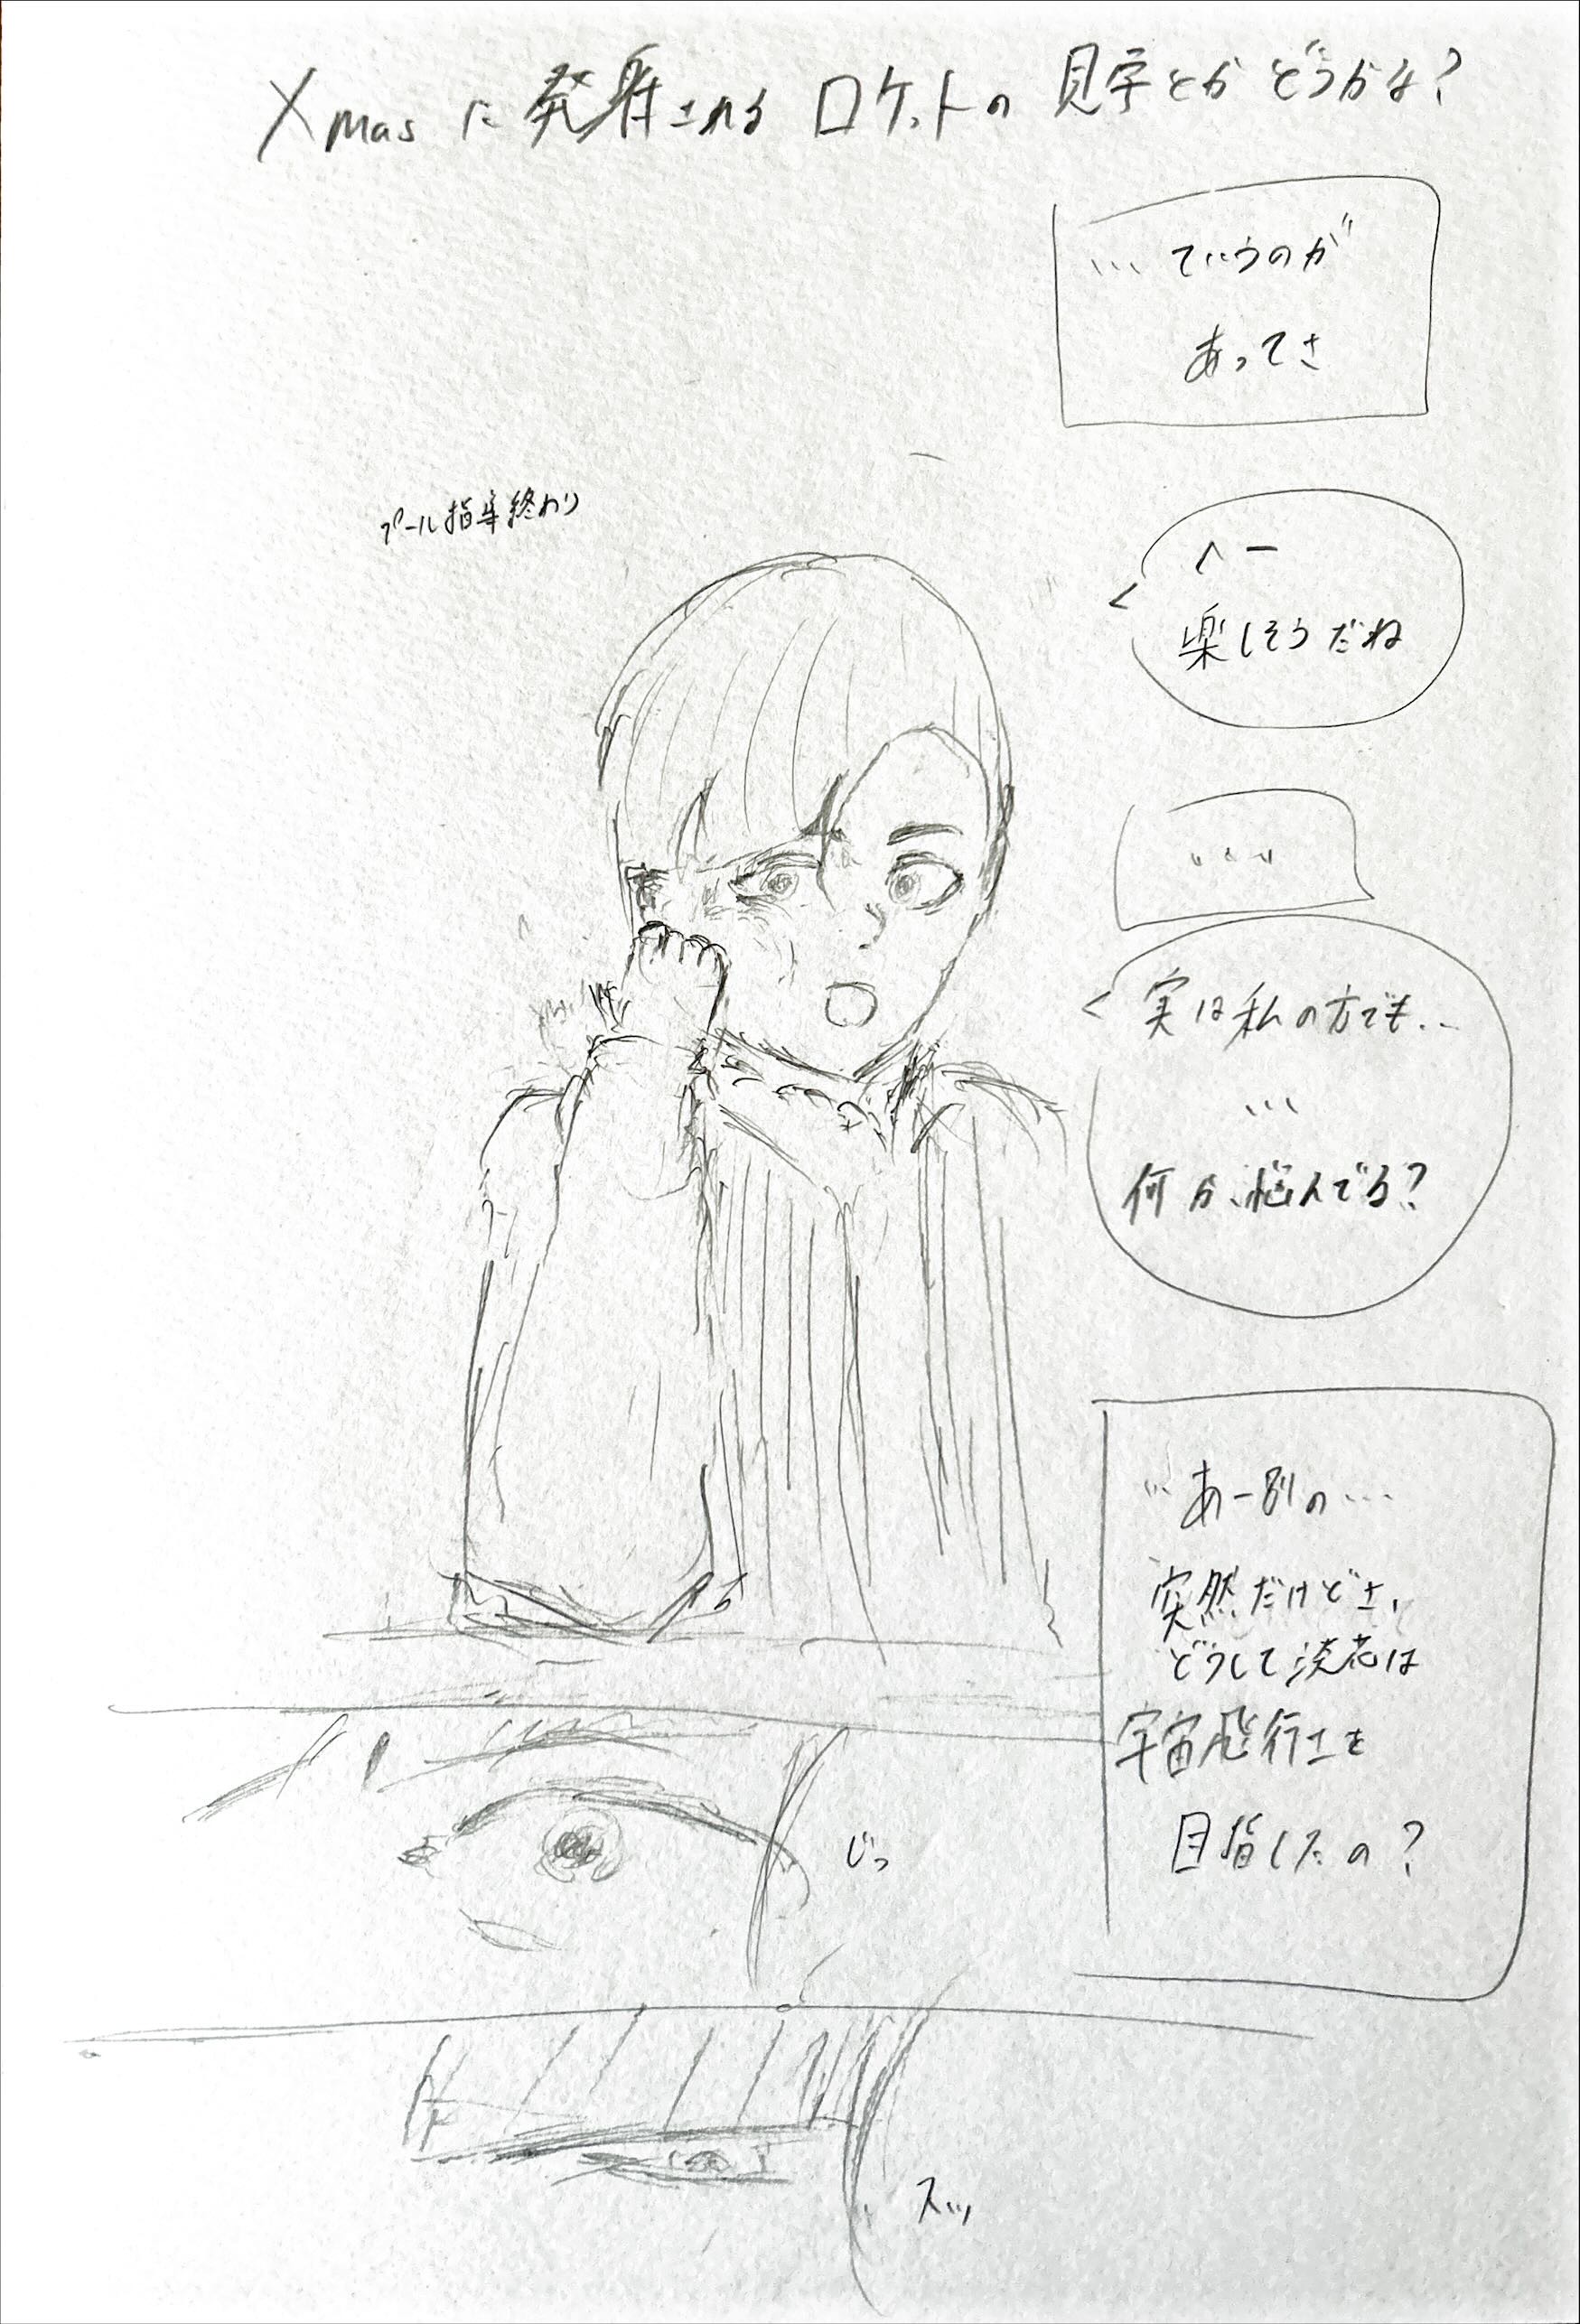 Xmasに発射されるロケットの見学とかどうかな？
… ていうのが
あってさ
プール指導終わり
へー
楽しそうだね
…
実は私の方でも…
…
何か悩んでる？
…あー別の…
突然だけどさ、
どうして淡花は
宇宙飛行士を
目指したの？
じっ
スッ